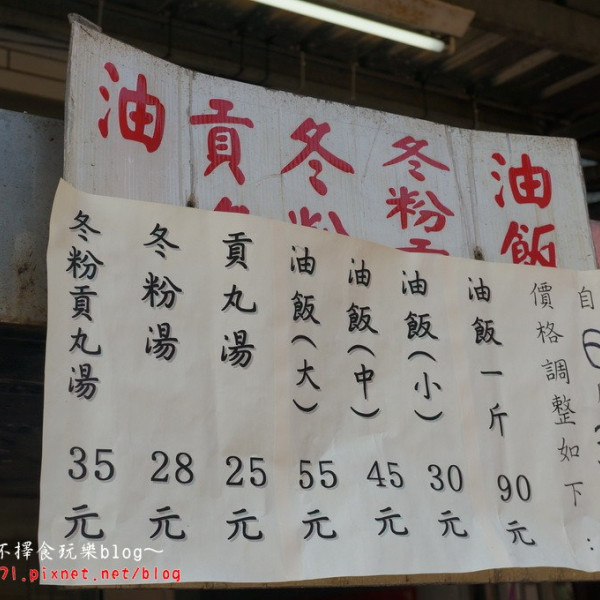 油
貢
冬粉
冬粉貢
油飯
自
價格調整如下：
油飯一斤 90元
油飯（小） 30元
油飯（中） 45元
油飯（大） 55元
貢丸湯 25元
冬粉湯 28元
冬粉貢丸湯 35元
不擇食玩樂blog～
71.pixnet.net/blog